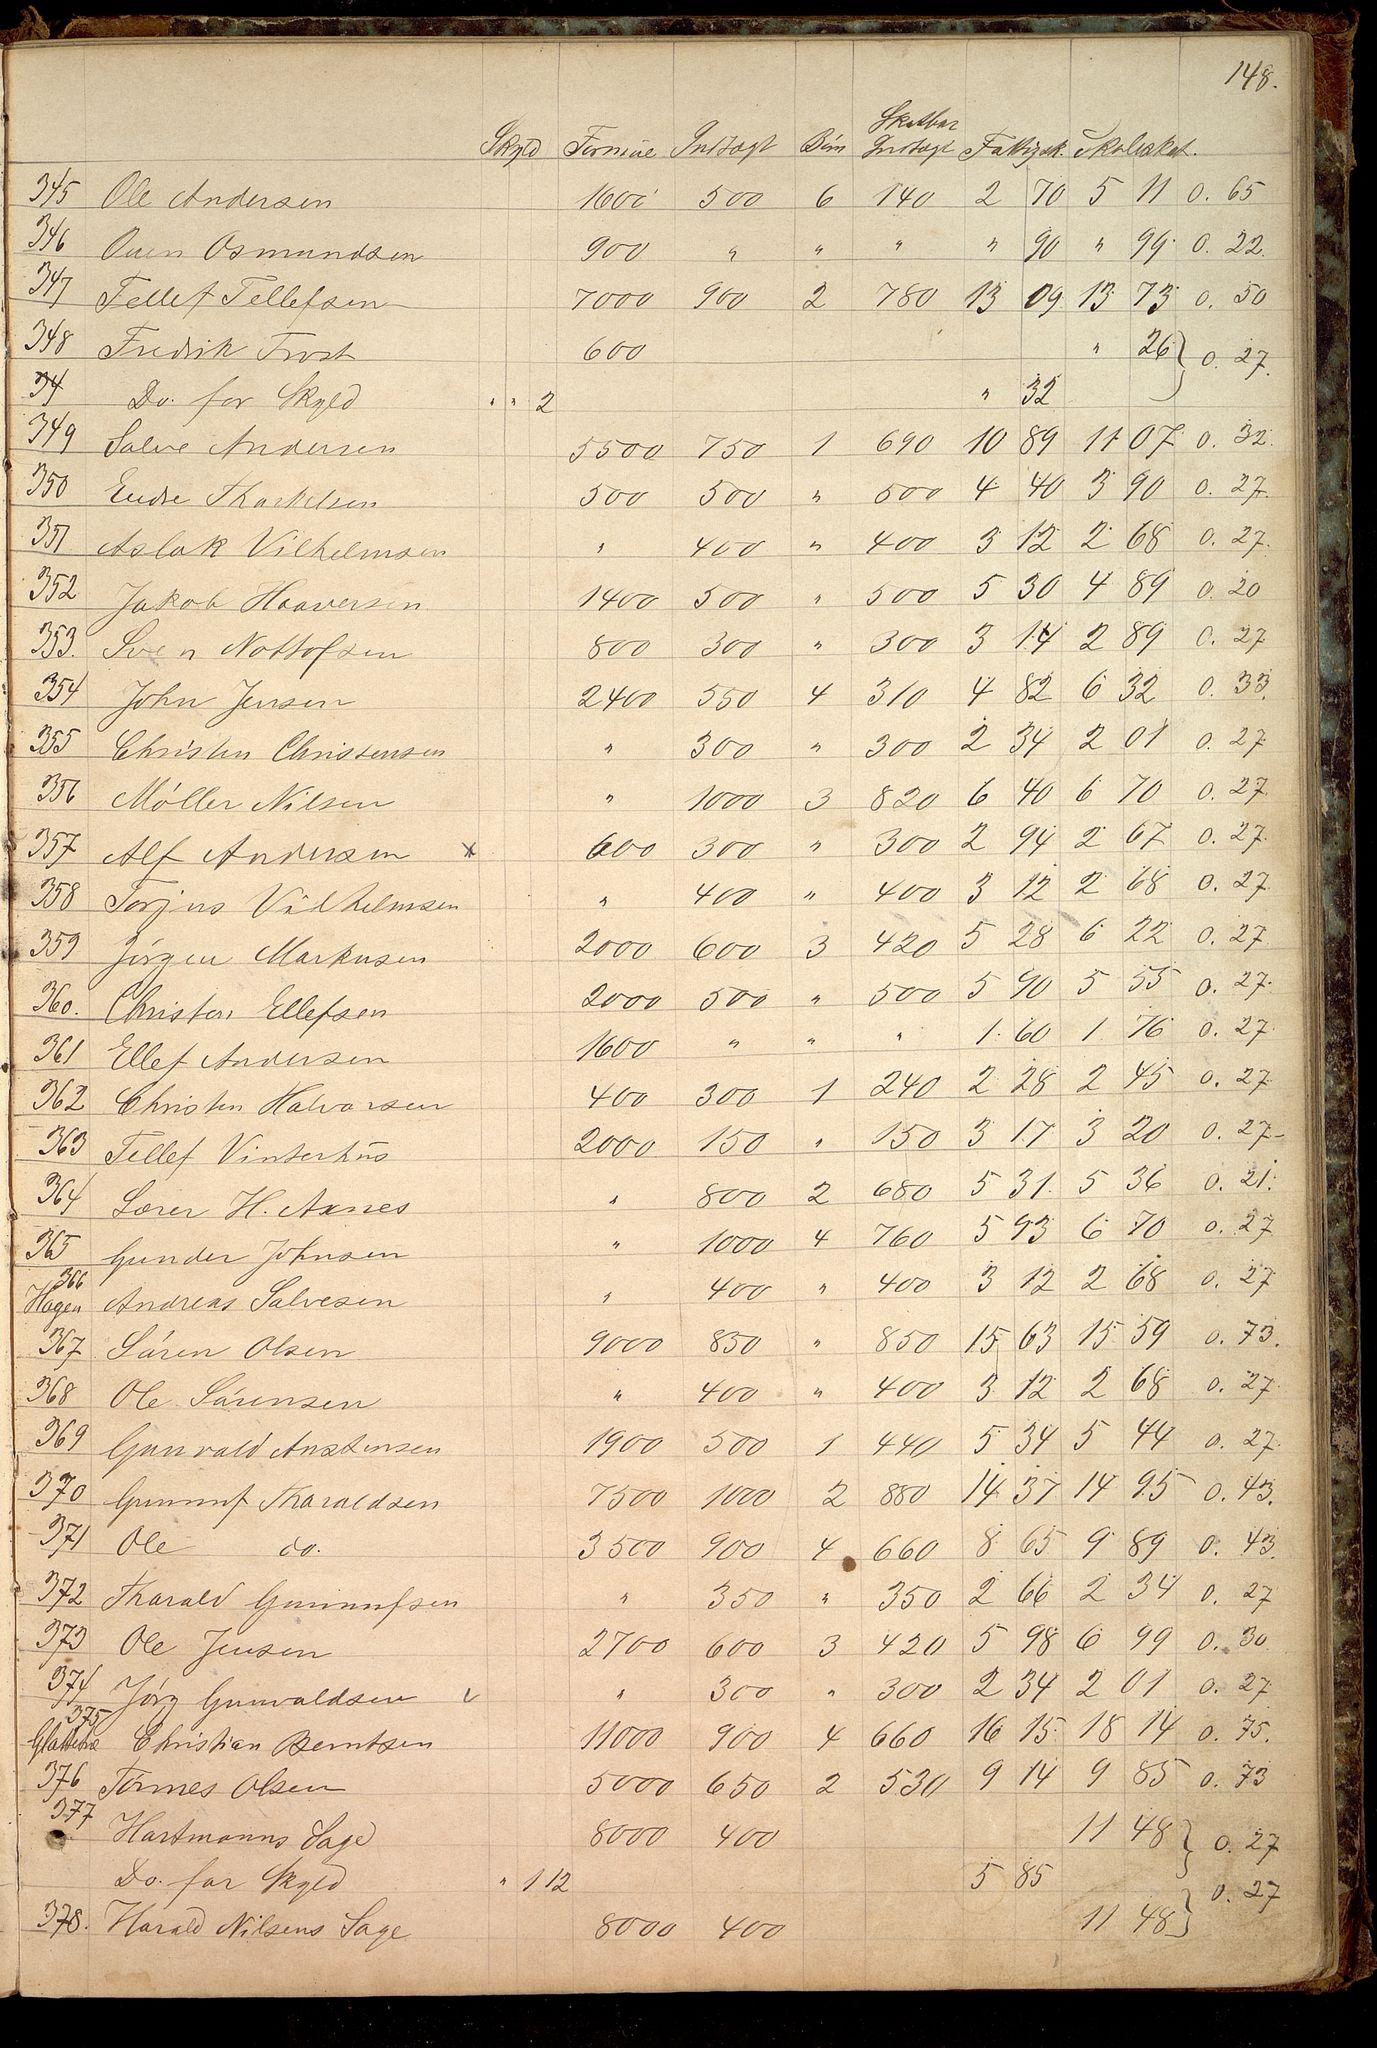 148.
Skyld Formue Indtægt Börn Skatbar Indtægt Fattigsk. Skoleskat.
345 Ole Andersen 1600 500 6 140 2 70 5 11 0. 65
346 Osmundsen 900 " " " " 90 " 99 0. 22
347 Tellef Tellefsen 7000 900 2 780 13 09 13 73 0. 50
348 Fredrik Frost 600 " 26 } 0. 27.
34 Do. for Skyld " " 2 " 32
349 Salve Andersen 5500 750 1 690 10 89 11 07 0. 32
350 Endre Tharkelsen 500 500 " 500 4 40 3 90 0. 27
351 Aslak Vilhelmsen " 400 " 400 3 12 2 68 0. 27.
352 Jakob Haaversen 1400 500 " 500 5 30 4 89 0. 20
353. Sven Nottofsen 800 300 " 300 3 14 2 89 0. 27
354 John Jensen 2400 550 4 310 4 82 6 32 0. 33.
355 Christen Christensen " 300 " 300 2 34 2 01 0. 27
356 Møller Nilsen " 1000 3 820 6 40 6 70 0. 27.
357 Alf Andersen x 600 300 " 300 2 94 2 67 0. 27.
358 Torjus Vilhelmsen " 400 " 400 3 12 2 68 0. 27.
359 Jörgen Markusen 2000 600 3 420 5 28 6 22 0. 27
360. Christen Ellefsen 2000 500 " 500 5 90 5 55 0. 27.
361 Ellef Andersen 1600 " " " 1. 60 1. 76 0. 27
362 Christen Halvorsen 400 300 1 240 2 28 2 45 0. 27
363 Tellef Vinterhus 2000 150 " 150 3 17 3 20 0. 27
364 Lærer H. Axnes " 800 2 680 5 31. 5 36 0. 21.
365 Gunder Johnsen " 1000 4 760 5 93 6 70 0. 27
366
Hagen Andreas Salvesen " 400 " 400 3 12 2 68 0. 27
367 Sören Olsen 9000 850 " 850 15 63 15 59 0. 73.
368 Ole Sörensen " 400 " 400 3 12 2 68 0. 27
369 Gunvald Anstensen 1900 500 1 440 5 34 5 44 0. 27
370 Gunnuf Tharaldsen 7500 1000 2 880 14 37 14 95 0. 43.
371 Ole do. 3500 900 4 660 8 65 9 89 0. 43.
372 Tharald Gunnufsen " 350 " 350 2 66 2 34 0. 27
373 Ole Jensen 2700 600 3 420 5 98 6 99 0. 30
374 Jörg Gunvaldsen v " 300 " 300 2 34 2 01 0. 27
375
Christian Berntsen 11000 900 4 660 16 15 18 14 0. 75.
376 Tönnes Olsen 5000 650 2 530 9 14 9 85 0. 73
377 Hartmanns Sage 8000 400 11 48 } 0. 27
Do. for Skyld " 1 12 5 85
378. Harald Nilsens Sage 8000 400 11 48 } 0. 27